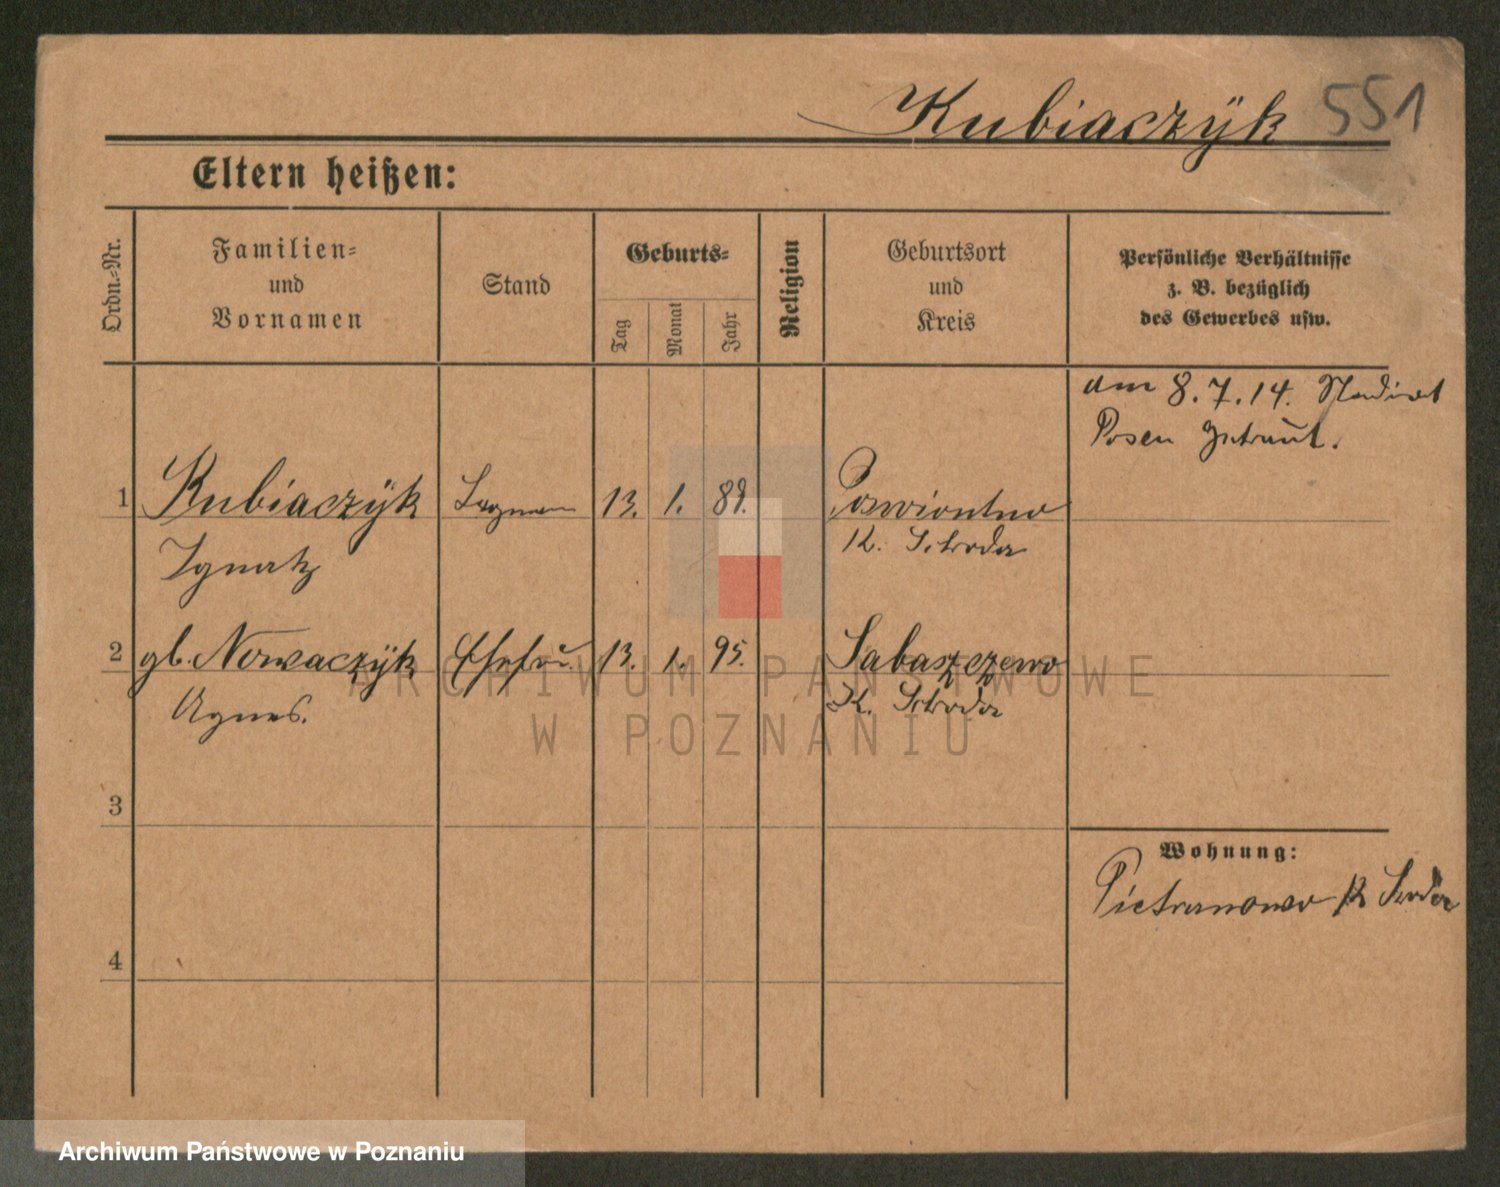 Kubiaczÿk 551
Eltern heißen:
Ordn.-Nr.
Familien-
und
Vornamen
Stand
Geburts-
Tag
Monat
Jahr
Religion
Geburtsort
und
Kreis
Persönliche Verhältnisse
z. B. bezüglich
des Gewerbes usw.
am 8.7.14.
Posen getraut.
1 Kubiaczÿk 13. 1. 89.
Ignatz K. Schroda
2 gb. Nowaczÿk Ehefrau 13. 1. 95. Sabaszczewo
Agnes. K. Schroda
3
Wohnung:
Pietranowo K Schroda
4
ARCHIWUM PAŃSTWOWE
W POZNANIU
Archiwum Państwowe w Poznaniu